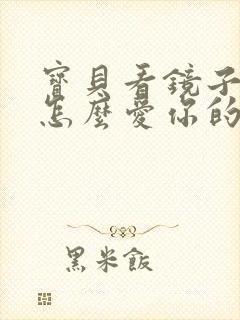 寶貝看鏡子
怎麼愛你的
黑米飯